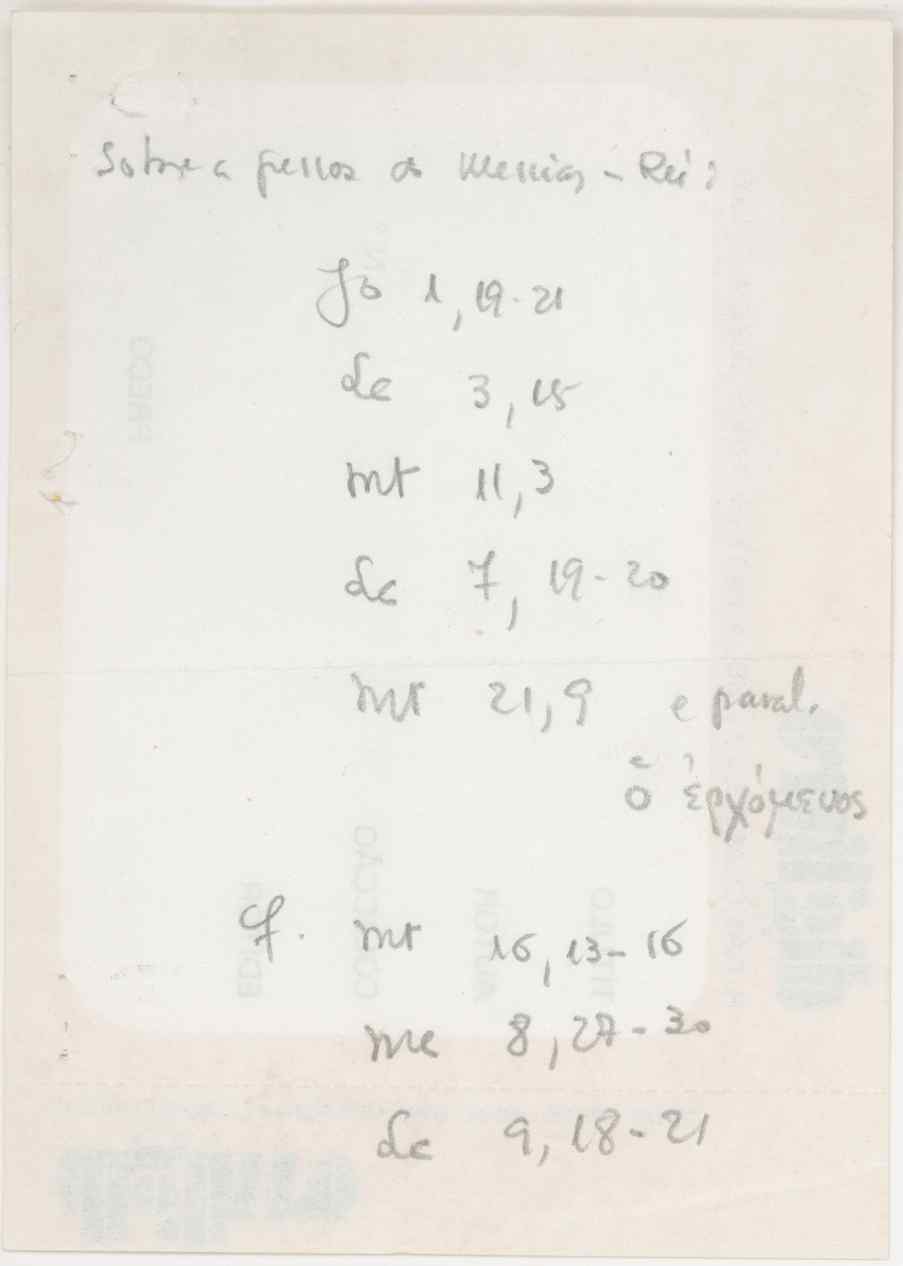 Sobre a pessoa do Messias - Rei:
Jo 1, 19-21
Lc 3, 15
Mt 11, 3
Lc 7, 19-20
Mt 21, 9 e paral.
ὁ ἐρχόμενος
Cf. Mt 16, 13-16
Mc 8, 27-30
Lc 9, 18-21
PREÇO
EDITOR
COLECÇÃO
AUTOR
TÍTULO